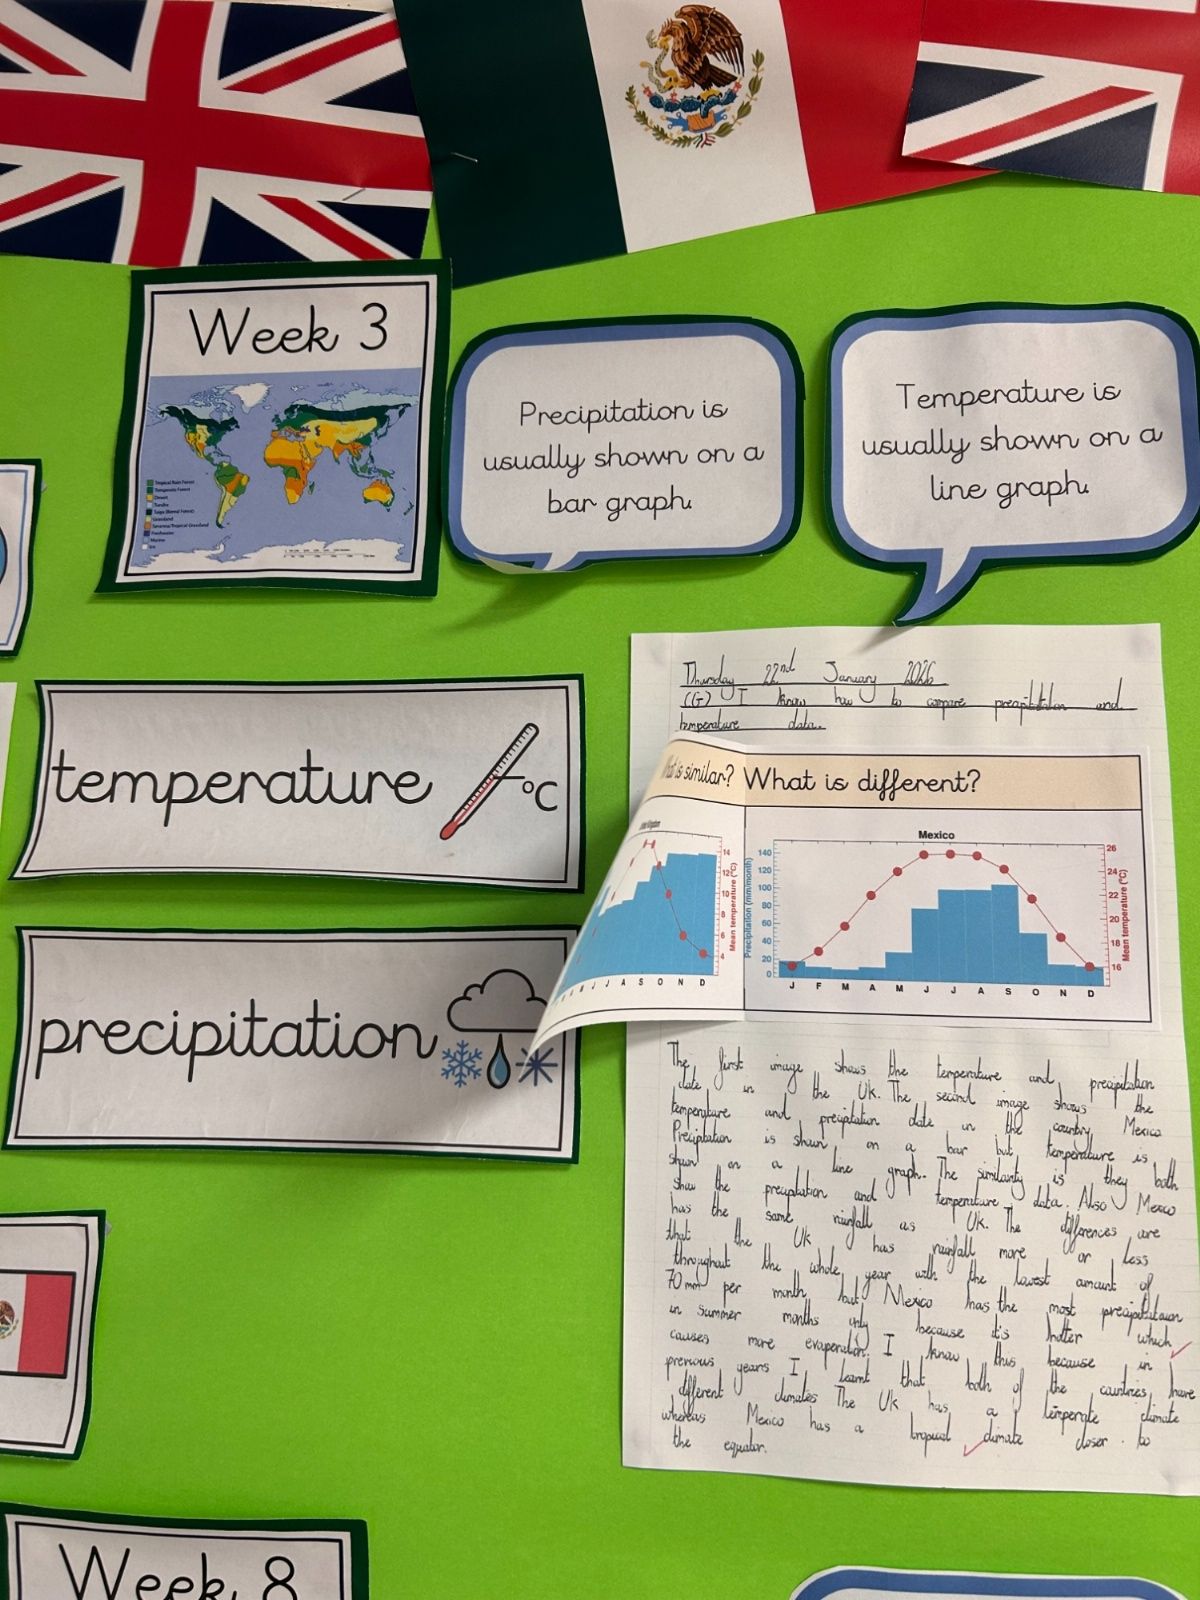 Week 3
Tropical Rain Forest
Temperate Forest
Desert
Tundra
Taiga (Boreal Forest)
Grassland
Savanna/Tropical Grassland
Freshwater
Marine
Ice
Precipitation is
usually shown on a
bar graph.
Temperature is
usually shown on a
line graph.
temperature °C
precipitation
Thursday 22nd January 2026
(G) I know how to compare precipitation and
temperature data.
is similar? What is different?
Mexico
Precipitation (mm/month)
140
120
100
80
60
40
20
0
26
24
22
20
18
16
Mean temperature (°C)
J F M A M J J A S O N D
14
12
10
8
6
4
Mean temperature (°C)
J J A S O N D
The first image shows the temperature and precipitation
date in the UK. The second image shows the
temperature and precipitation date in the country Mexico
Precipitation is shown on a bar but temperature is
shown on a line graph. The similarity is they both
show the precipitation and temperature data. Also Mexico
has the same rainfall as UK. The differences are
that the UK has rainfall more or less
throughout the whole year with the lowest amount of
70mm per month but Mexico has the most precipitation
in summer months only because it's hotter which
causes more evaporation. I know this because in
previous years I learnt that both of the countries have
different climates The UK has a temperate climate
whereas Mexico has a tropical climate closer to
the equator.
Week 8